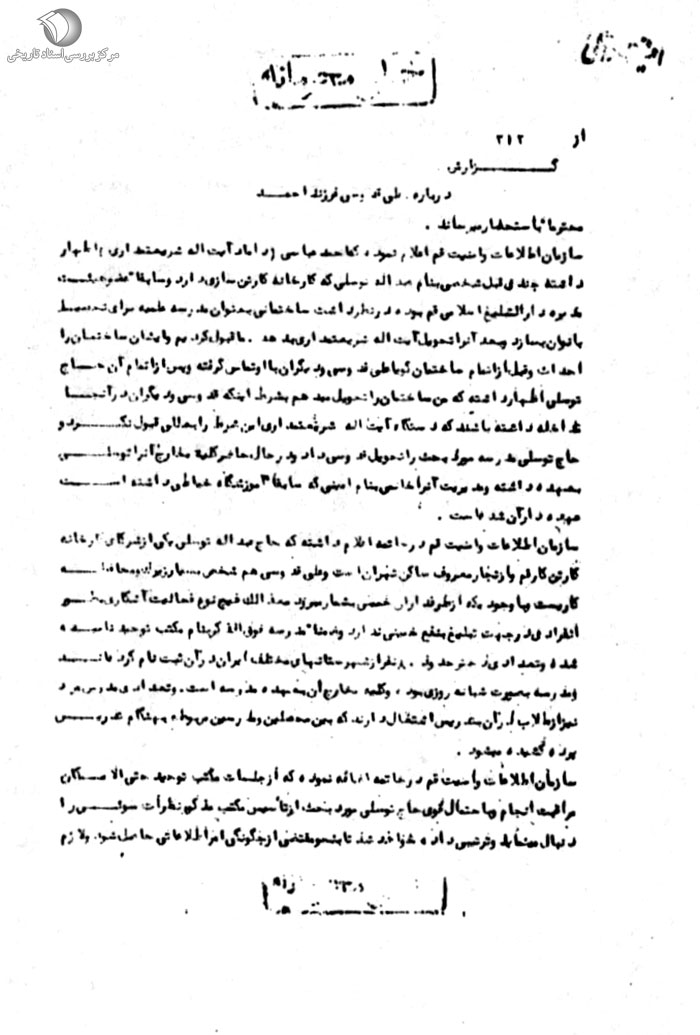 مرکز بررسی اسناد تاریخی
از ۳۱۲
گزارش
درباره . علی قدوسی فرزند احمد
محترما" باستحضار میرساند .
سازمان اطلاعات و امنیت قم اعلام نموده که احمد عباسی (داماد آیت اله شریعتمداری) اظهار
داشته چندی قبل شخصی بنام عبداله توسلی که کارخانه کارتن سازی دارد و سابقا" عضو هیئت
مدیره دارالتبلیغ اسلامی قم بوده در نظر داشت ساختمانی بعنوان مدرسه علمیه برای تحصیل
بانوان بسازد و بعد آنرا تحویل آیت اله شریعتمداری بدهد . ما قبول کردیم و ایشان ساختمان را
احداث و قبل از اتمام ساختمان گویا علی قدوسی و دیگران با او تماس گرفته و پس از اتمام آن حاج
توسلی اظهار داشته که من ساختمان را تحویل میدهم بشرط اینکه قدوسی و دیگران در آنجا
مداخله داشته باشند که دستگاه آیت اله شریعتمداری این شرط را بعللی قبول نکرد و
حاج توسلی مدرسه مورد بحث را تحویل قدوسی داد و در حال حاضر کلیه مخارج آنرا توسلی
بعهده داشته و مدیریت آنرا خانمی بنام امینی که سابقا" آموزشگاه خیاطی داشته است
عهده دار آن شده است .
سازمان اطلاعات و امنیت قم در خاتمه اعلام داشته که حاج عبداله توسلی یکی از شرکای کارخانه
کارتن کار قم و از تجار معروف ساکن تهران است و علی قدوسی هم شخص بسیار زیرک و محافظه
کاریست و با وجودیکه از طرفداران خمینی بشمار میرود معذالک هیچ نوع فعالیت آشکاری بطور
انفرادی در جهت تبلیغ بنفع خمینی ندارد و ضمنا" مدرسه فوق الذکر بنام مکتب توحید نامیده
شده و تعدادی دختر حدود نفر از شهرستانهای مختلف ایران در آن ثبت نام کرده اند
و مدرسه بصورت شبانه روزی بوده و کلیه مخارج آن بعهده مدرسه است . و تعدادی مدرس مرد
نیز از طلاب در آن بتدریس اشتغال دارند که بین محصلین و مدرسین مربوطه بهنگام تدریس
پرده کشیده میشود .
سازمان اطلاعات و امنیت قم در خاتمه اضافه نموده که از جلسات مکتب توحید حتی الامکان
مراقبت انجام و با احتمال قوی حاج توسلی مورد بحث از تاسیس مکتب مذکور نظرات سوئی را
دنبال مینماید و ترتیبی داده خواهد شد تا بنحو مقتضی از چگونگی امر اطلاعاتی حاصل شود . و لازم